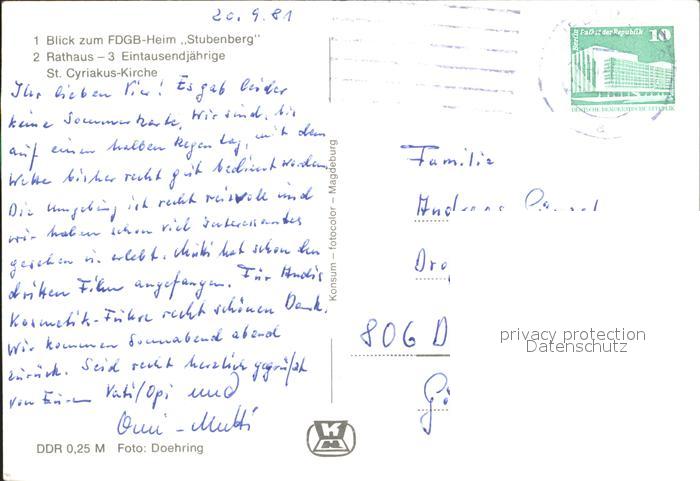 20.9.81
1 Blick zum FDGB-Heim „Stubenberg"
2 Rathaus – 3 Eintausendjährige
St. Cyriakus-Kirche
Ihr lieben Vier! Es gab leider
keine Sommerkarte. Wir sind, bis
auf einen halben Regentag, mit dem
Wetter bisher recht gut bedient worden.
Die Umgebung ist recht reizvoll und
wir haben schon viel Interessantes
gesehen u. erlebt. Mutti hat schon den
dritten Film angefangen. Für Andis
Kosmetik-Führe recht schönen Dank.
Wir kommen Sonnabend abend
zurück. Seid recht herzlich gegrüßt
von Euren Vati/Opi und
Omi-Mutti
DDR 0,25 M Foto: Doehring
Konsum – fotocolor – Magdeburg
Berlin Palast der Republik 10
DEUTSCHE DEMOKRATISCHE REPUBLIK
Familie
Andreas
806 D
privacy protection
Datenschutz